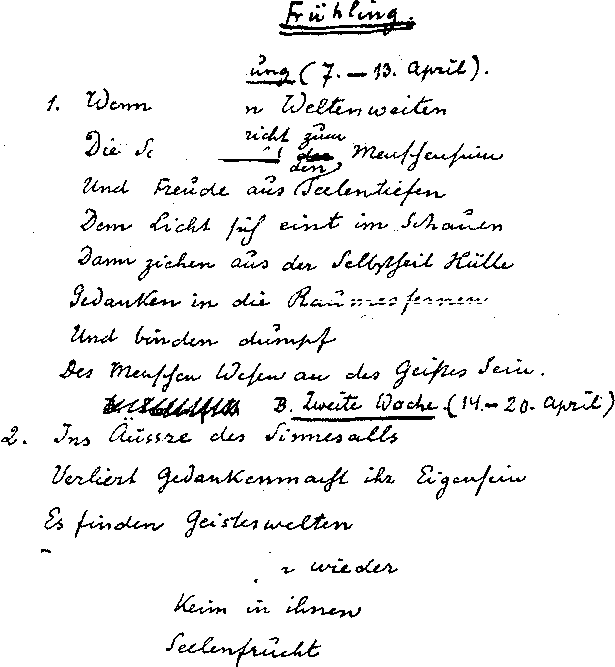 Frühling.
ung (7. – 13. April).
1. Wenn n Weltenweiten
richt zum
Die So den Menschensinn
Und Freude aus Seelentiefen
Dem Licht sich eint im Schauen
Dann ziehen aus der Selbstheit Hülle
Gedanken in die Raumesfernen
Und binden dumpf
Des Menschen Wesen an des Geistes Sein.
B. Zweite Woche. (14. – 20. April)
2. Ins Äussre des Sinnesalls
Verliert Gedankenmacht ihr Eigensein
Es finden Geisteswelten
wieder
Keim in ihnen
Seelenfrucht